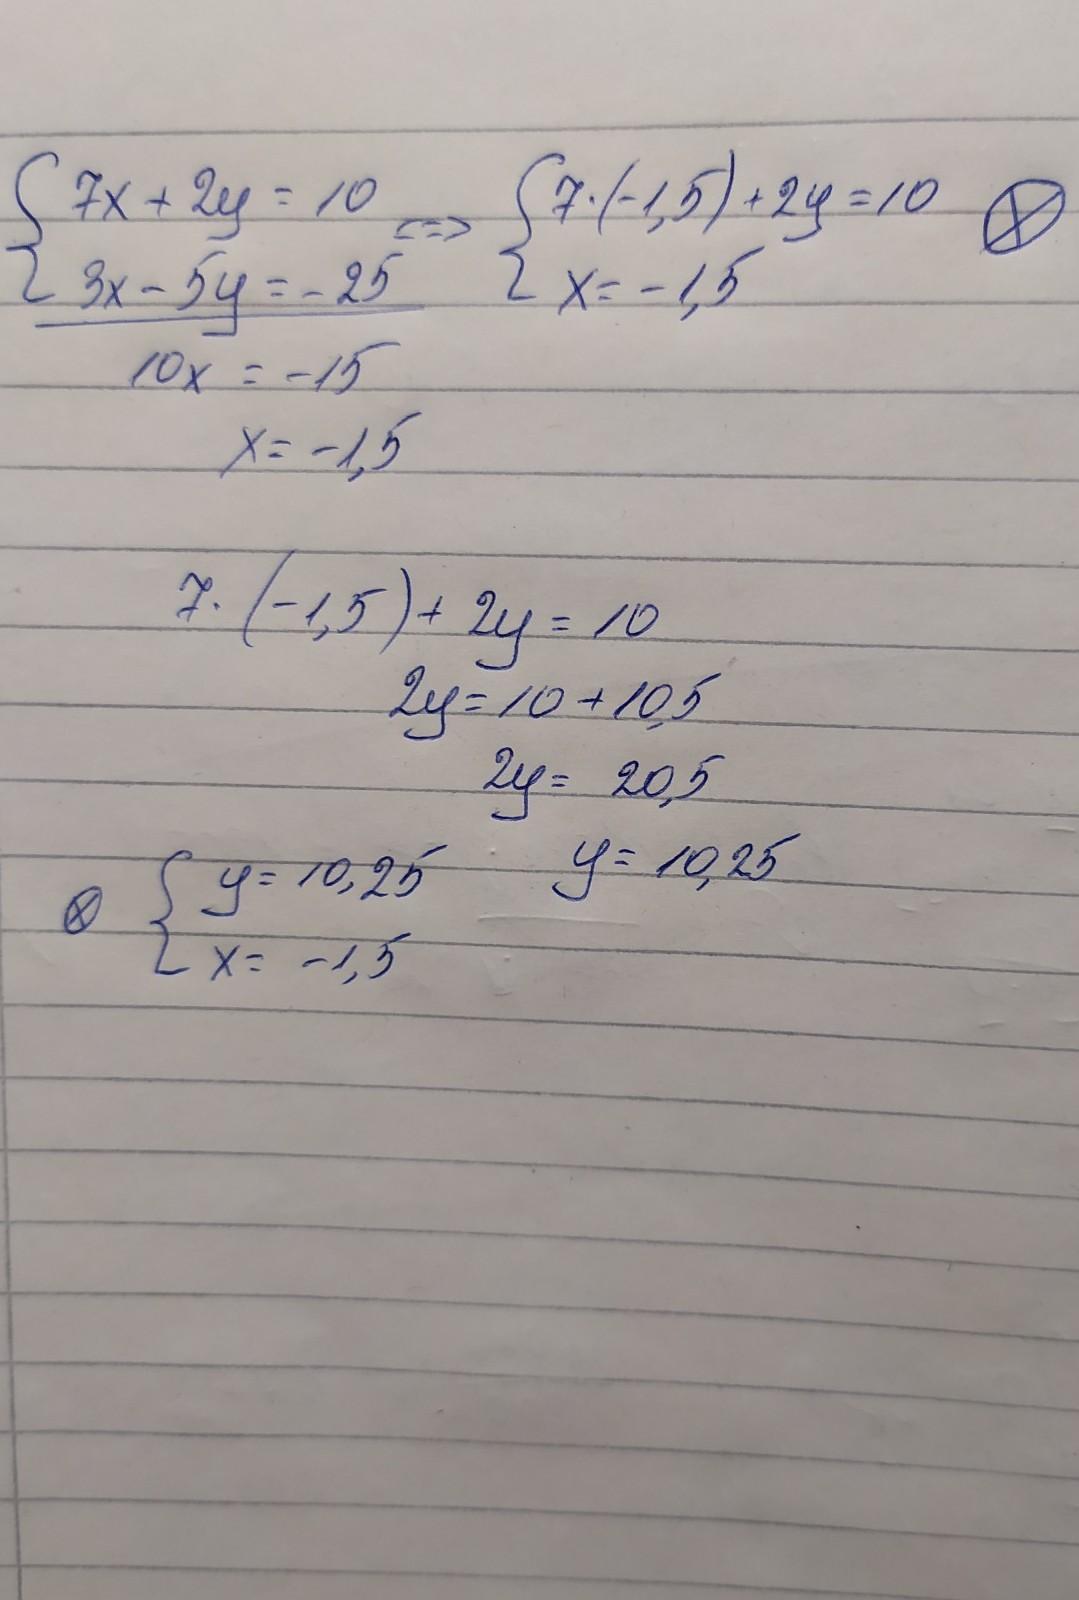 { 7x + 2y = 10 <=> { 7·(-1,5) + 2y = 10 ⊗
3x - 5y = -25 x = -1,5
10x = -15
x = -1,5
7·(-1,5) + 2y = 10
2y = 10 + 10,5
2y = 20,5
y = 10,25
⊗ { y = 10,25
x = -1,5